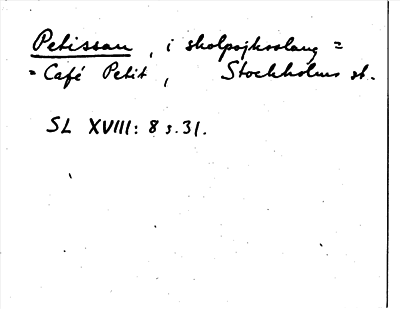 Petissan, i skolpojksslang =
= Café Petit, Stockholms st.
SL XVIII: 8 s. 31.